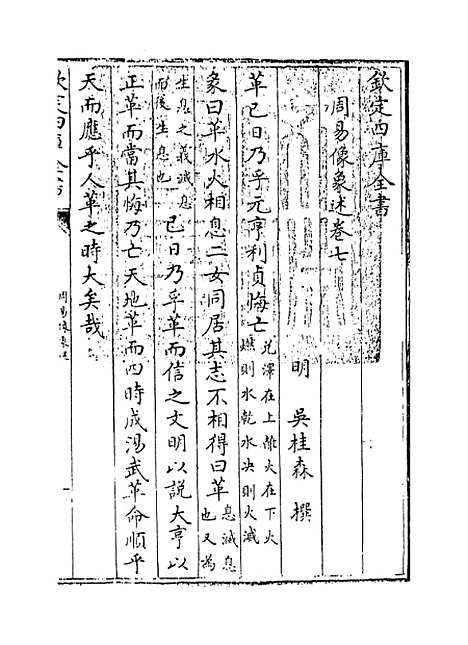 欽定四庫全書
周易像象述卷七
明 吳桂森 撰
革已日乃孚元亨利貞悔亡
兌澤在上離火在下火
燥則水乾水決則火滅
彖曰革水火相息二女同居其志不相得曰革
息滅息
也又為
生息之義滅息
而後生息也
已日乃孚革而信之文明以說大亨以
正革而當其悔乃亡天地革而四時成湯武革命順乎
天而應乎人革之時大矣哉
欽定四庫全書
周易像象述